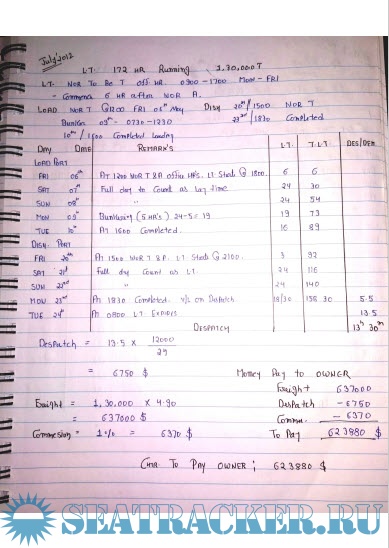 July'2012
L.T. 172 HR Running 1,30,000 T
L.T. NOR To Be T off. HR. 0900-1700 MON-FRI
- Commence 6 HR after NOR A.
LOAD NOR T @1200 FRI 06th May Disch 20th/1500 NOR T
Bunker 09th - 0730-1230 23rd/1830 Completed
10th/1600 Completed Loading
DAY DATE REMARK'S L.T. T.L.T. DES/DEM
LOAD PORT
FRI 06th AT 1200 NOR T & A office HR's. L.T. Starts @ 1800. 6 6
SAT 07th Full day to Count as lay time 24 30
SUN 08th " 24 54
MON 09th Bunkering (5 HR's) 24-5 = 19 19 73
TUE 10th AT 1600 Completed. 16 89
DISCH. PORT
FRI 20th AT 1500 NOR T & A. L.T. Starts @ 2100. 3 92
SAT 21st Full day Count as L.T. 24 116
SUN 22nd " 24 140
MON 23rd AT 1830 Completed. V/L on Despatch 18/30 158 30 5.5
TUE 24th AT 0800 L.T. EXPIRES 13.5
DESPATCH 13h 30m
DESPATCH = 13.5 x 12000
24
= 6750 $ Money Pay to OWNER
Freight 637000
Freight = 1,30,000 x 4.90 Despatch - 6750
= 637000 $ Comm. - 6370
Commission = 1% = 6370 $ To Pay 623880 $
CHR. TO PAY OWNER ; 623880 $
SEATRACKER.RU